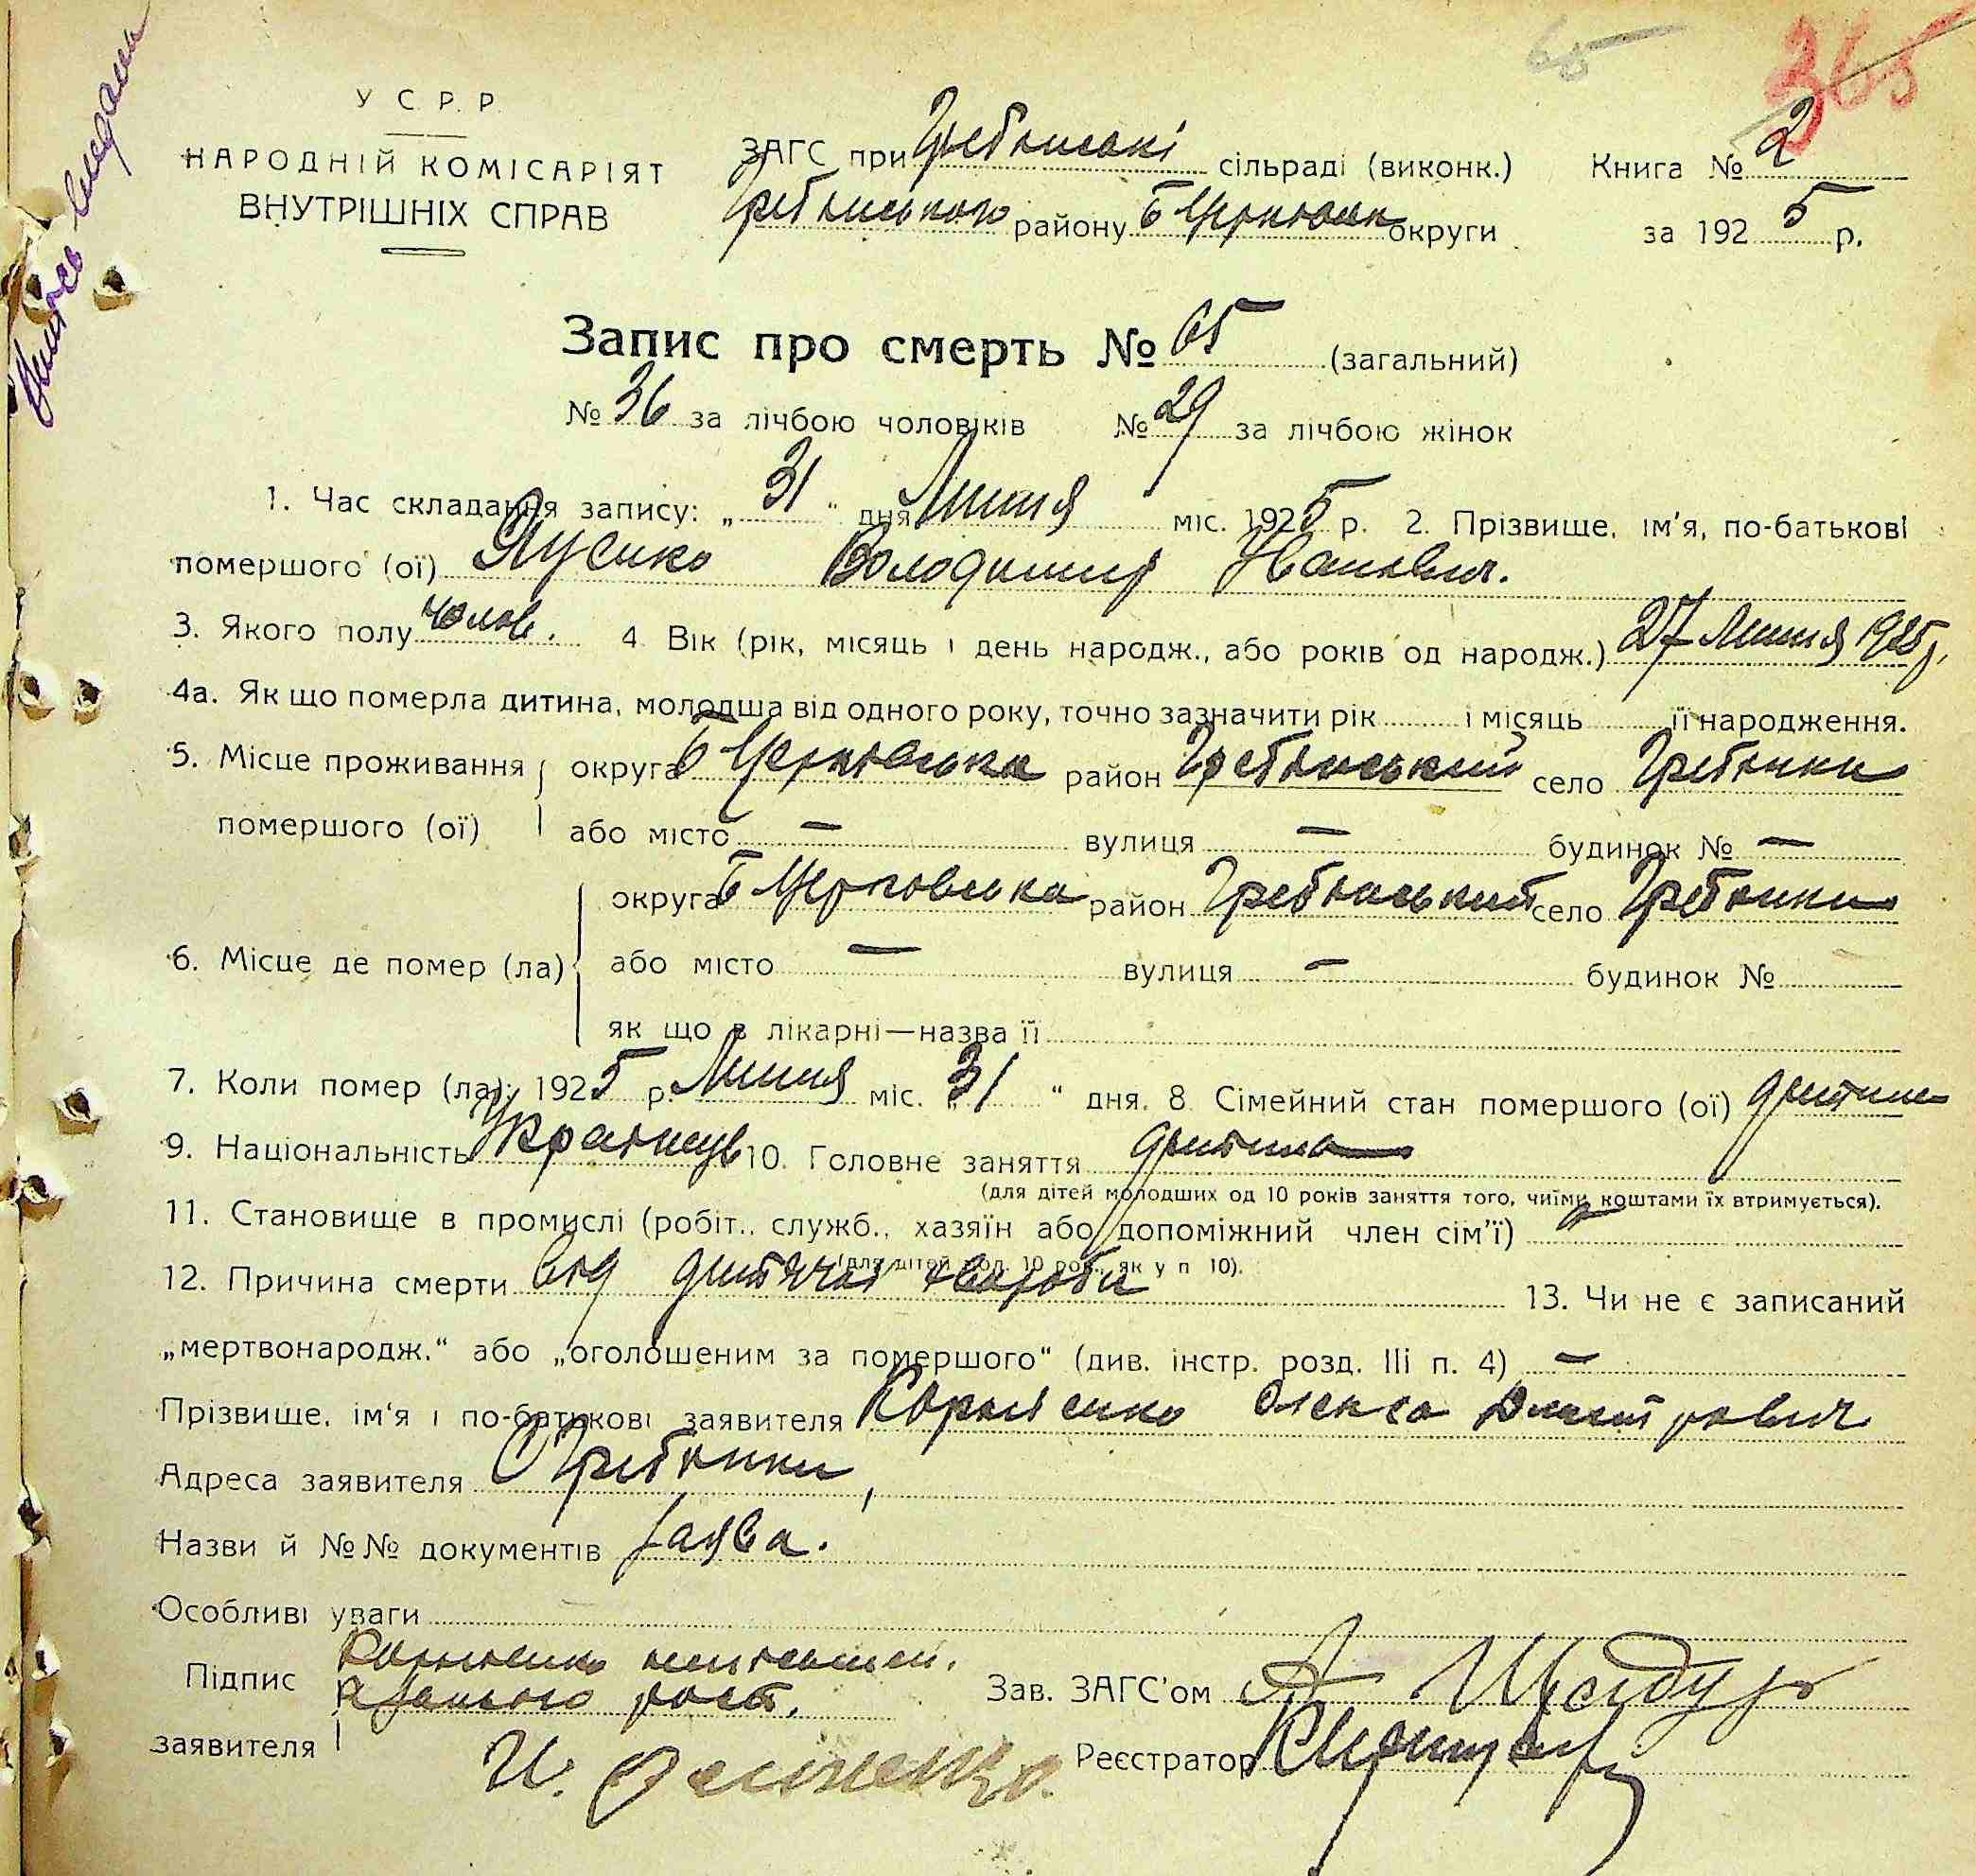 65 365
У С. Р. Р.
НАРОДНІЙ КОМІСАРІЯТ
ВНУТРІШНІХ СПРАВ
ЗАГС при Гребінські сільраді (виконк.) Книга № 2
Гребінського району Б Церківськ округи за 1925 р.
Запис про смерть № 65 (загальний)
№ 36 за лічбою чоловіків № 29 за лічбою жінок
1. Час складання запису: „31“ дня Липня міс. 1925 р. 2. Прізвище, ім'я, по-батькові
помершого (ої) Володимир Іванович.
3. Якого полу чолов. 4 Вік (рік, місяць і день народж., або років од народж.) 27 Липня 1925 р.
4а. Як що померла дитина, молодша від одного року, точно зазначити рік і місяць її народження.
5. Місце проживання округа Б Церківська район Гребінський село Гребінки
помершого (ої) або місто — вулиця — будинок № —
округа Б Церковська район Гребінський село Гребінки
6. Місце де помер (ла) або місто — вулиця — будинок №
як що в лікарні—назва її
7. Коли помер (ла): 1925 р. Липня міс. „31“ дня. 8 Сімейний стан помершого (ої) дитина
9. Національність Українець 10. Головне заняття дитина
(для дітей молодших од 10 років заняття того, чиїми коштами їх втримується).
11. Становище в промислі (робіт., служб., хазяїн або допоміжний член сім'ї) —
(для дітей мол. 10 рок., як у п 10).
12. Причина смерти від дитячої хвороби 13. Чи не є записаний
„мертвонародж.“ або „оголошеним за помершого“ (див. інстр. розд. III п. 4) —
Прізвище, ім'я і по-батькові заявителя Олекса Дмитрович
Адреса заявителя с Гребінки,
Назви й №№ документів Заява.
Особливі уваги
Підпис
заявителя
Зав. ЗАГС'ом
Реєстратор